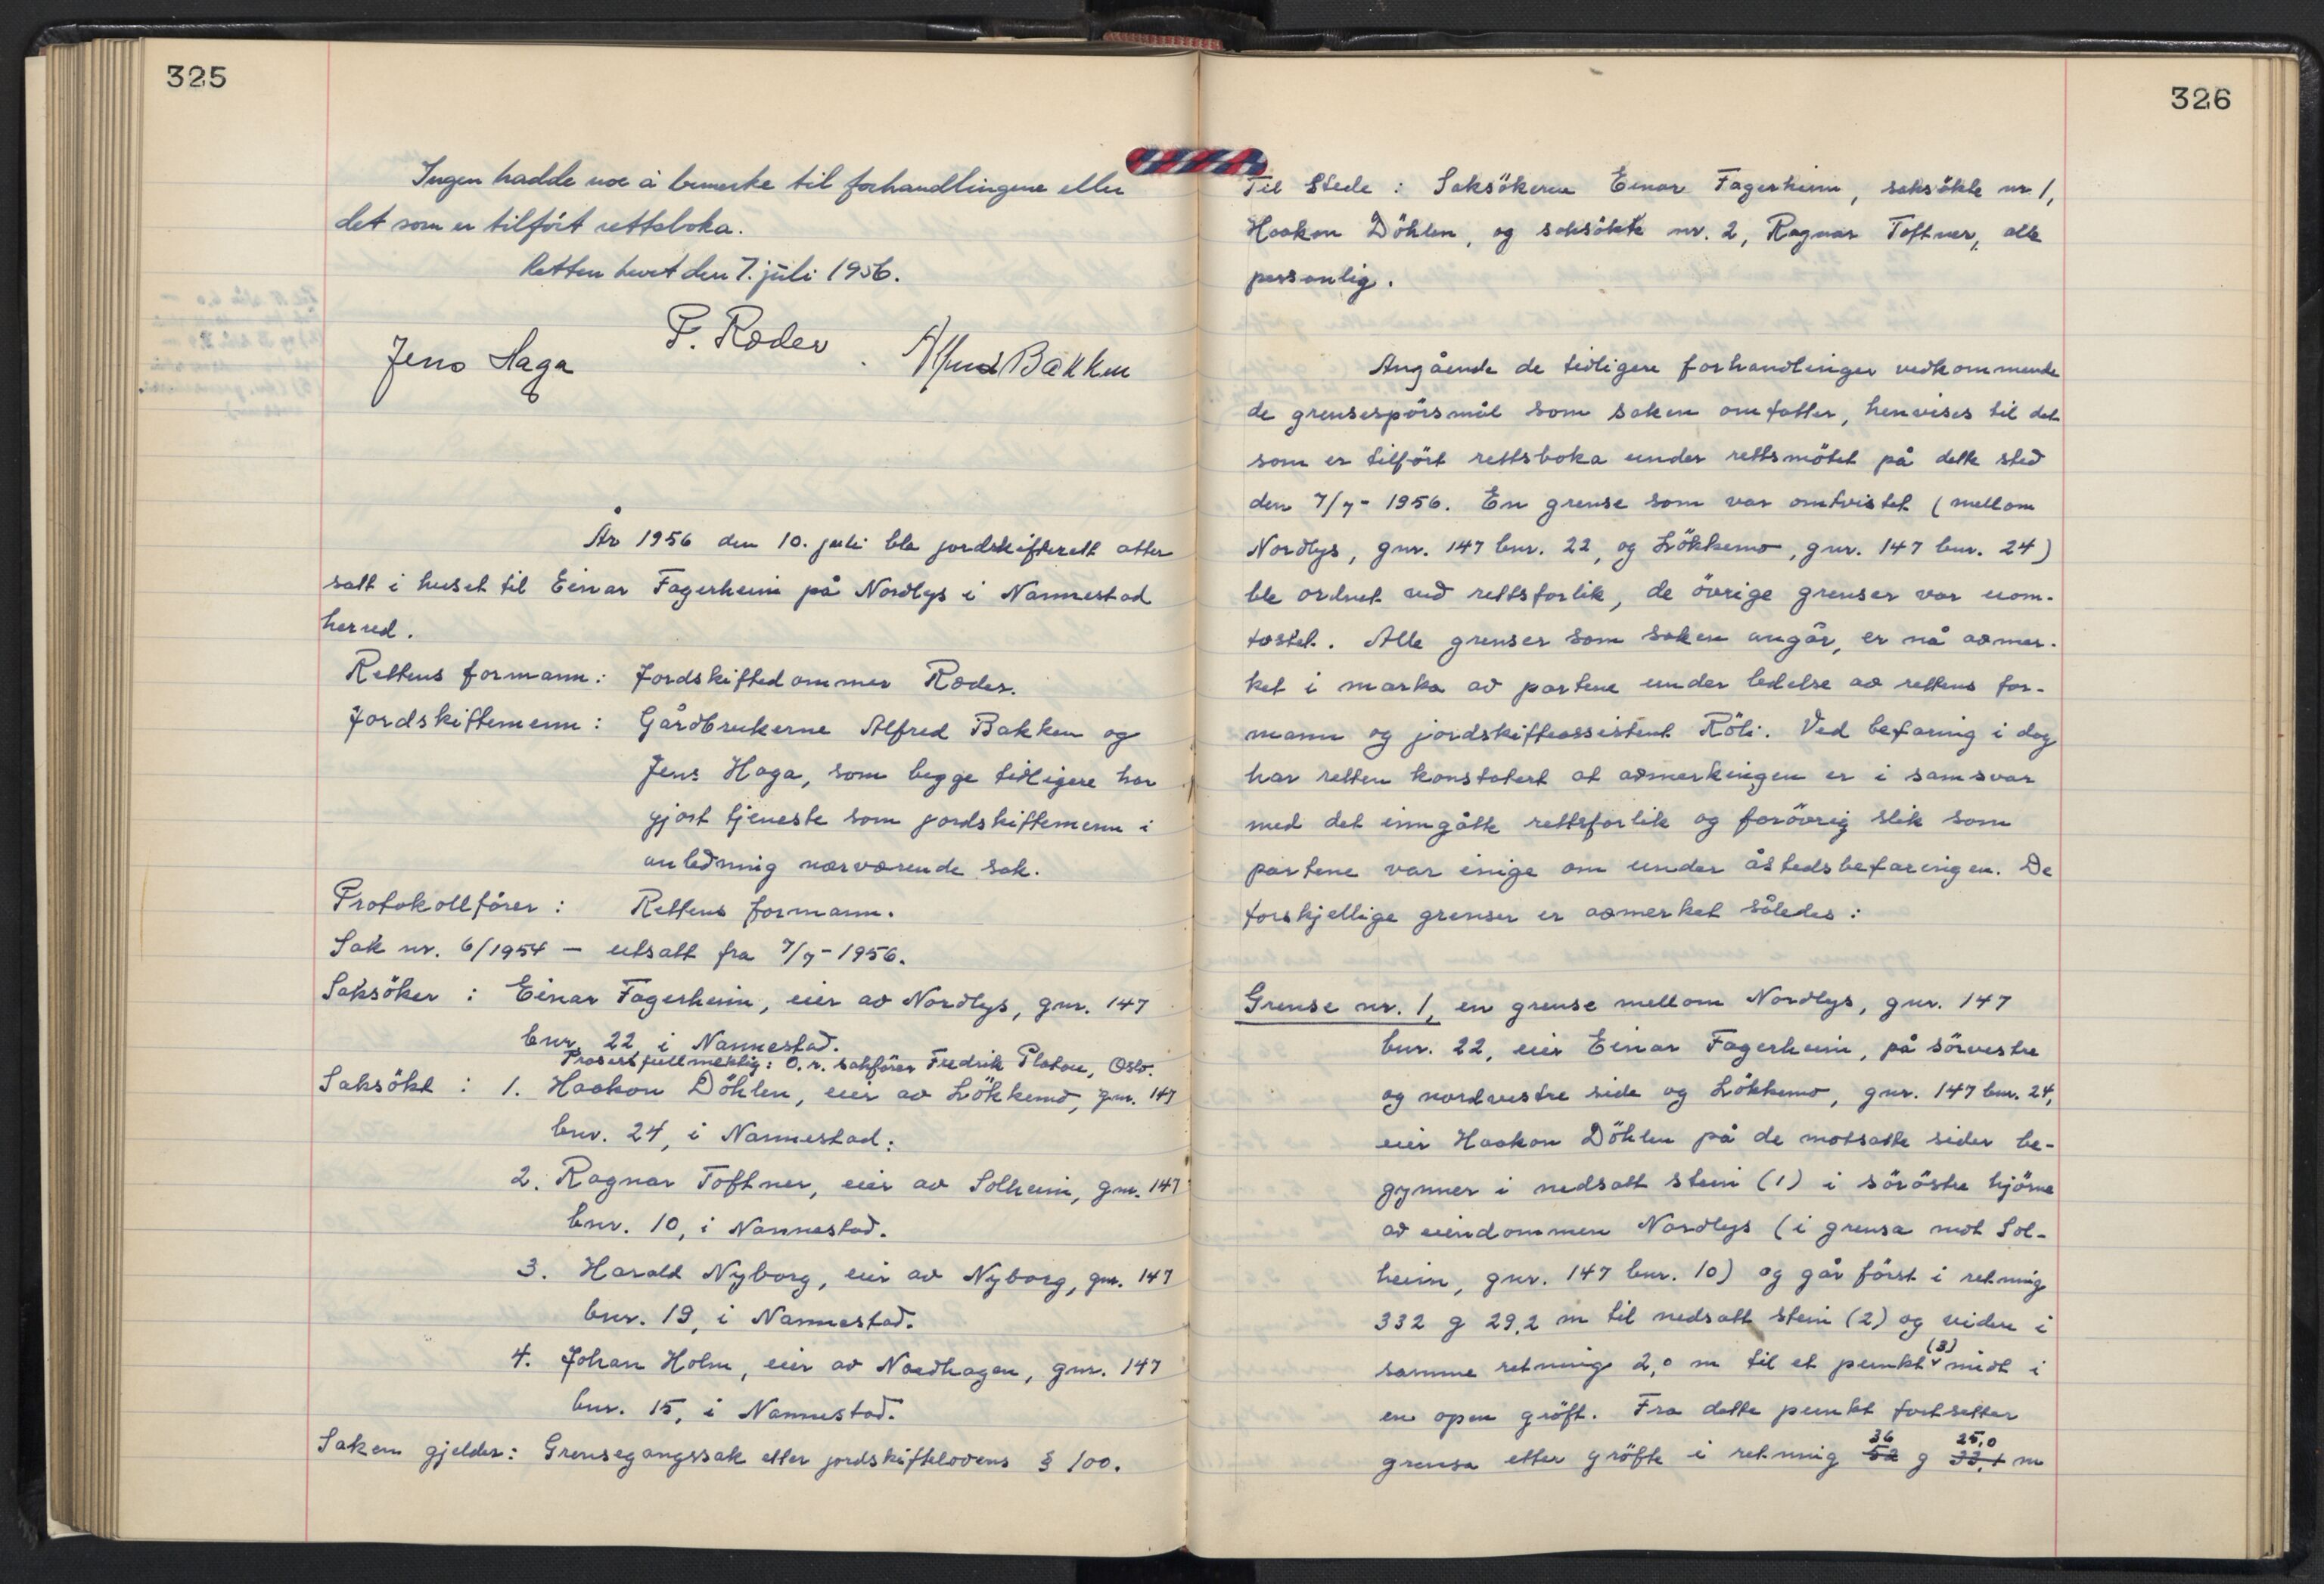 325
Ingen hadde noe å bemerke til forhandlingene eller
det som er tilført rettsboka.
Retten hevet den 7. juli 1956.
Jens Haga P. Roder Alfred Bakken
År 1956 den 10. juli ble jordskifterett atter
satt i huset til Einar Fagerheim på Nordlys i Nannestad
herred.
Rettens formann: Jordskiftedommer Roder.
Jordskiftemenn: Gårdbrukerne Alfred Bakken og
Jens Haga, som begge tidligere har
gjort tjeneste som jordskiftemenn i
anledning nærværende sak.
Protokollfører: Rettens formann.
Sak nr. 6/1954 — utsatt fra 7/7-1956.
Saksöker: Einar Fagerheim, eier av Nordlys, gnr. 147
bnr. 22 i Nannestad.
Prosessfullmektig: O.r. sakförer Fredrik Platou, Oslo.
Saksökt: 1. Haakon Döhlen, eier av Lökkemo, gnr. 147
bnr. 24, i Nannestad.
2. Ragnar Toftner, eier av Solheim, gnr. 147
bnr. 10, i Nannestad.
3. Harald Nyborg, eier av Nyborg, gnr. 147
bnr. 19, i Nannestad.
4. Johan Holm, eier av Nordhagen, gnr. 147
bnr. 15, i Nannestad.
Saken gjelder: Grensegangssak etter jordskiftelovens § 100.
326
Til Stede: Saksökeren Einar Fagerheim, saksökte nr 1,
Haakon Döhlen, og saksökte nr. 2, Ragnar Toftner, alle
personlig.
Angående de tidligere forhandlinger vedkommende
de grensespörsmål som saken omfatter, henvises til det
som er tilfört rettsboka under rettsmötet på dette sted
den 7/7-1956. En grense som var omtvistet (mellom
Nordlys, gnr. 147 bnr. 22, og Lökkemo, gnr. 147 bnr. 24)
ble ordnet ved rettsforlik, de övrige grenser var uom-
tvistet. Alle grenser som saken angår, er nå avmer-
ket i marka av partene under ledelse av rettens for-
mann og jordskifteassistent Röli. Ved befaring i dag
har retten konstatert at avmerkingen er i samsvar
med det inngåtte rettsforlik og forövrig slik som
partene var enige om under åstedsbefaringen. De
forskjellige grenser er avmerket således:
Grense nr. 1, en grense mellom Nordlys, gnr. 147
bnr. 22, eier Einar Fagerheim, på sörvestre
og nordvestre side og Lökkemo, gnr. 147 bnr. 24,
eier Haakon Döhlen på de motsatte sider be-
gynner i nedsatt stein (1) i söröstre hjörne
av eiendommen Nordlys (i grensa mot Sol-
heim, gnr. 147 bnr. 10) og går först i retning
332 g 29,2 m til nedsatt stein (2) og videre i
samme retning 2,0 m til et punkt (3) midt i
en open gröft. Fra dette punkt fortsetter
grensa etter gröfta i retning 52 36 g 33,1 25,0 m